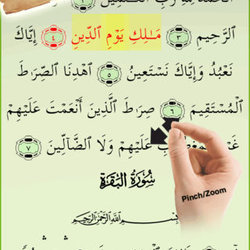 ٱلرَّحِيمِ ٣ مَـٰلِكِ يَوْمِ ٱلدِّينِ ٤ إِيَّاكَ
نَعْبُدُ وَإِيَّاكَ نَسْتَعِينُ ٥ ٱهْدِنَا ٱلصِّرَٰطَ
ٱلْمُسْتَقِيمَ ٦ صِرَٰطَ ٱلَّذِينَ أَنْعَمْتَ عَلَيْهِمْ
عَلَيْهِمْ وَلَا ٱلضَّآلِّينَ ٧
سُورَةُ ٱلْبَقَرَةِ
Pinch/Zoom
بِسْمِ ٱللَّهِ ٱلرَّحْمَـٰنِ ٱلرَّحِيمِ